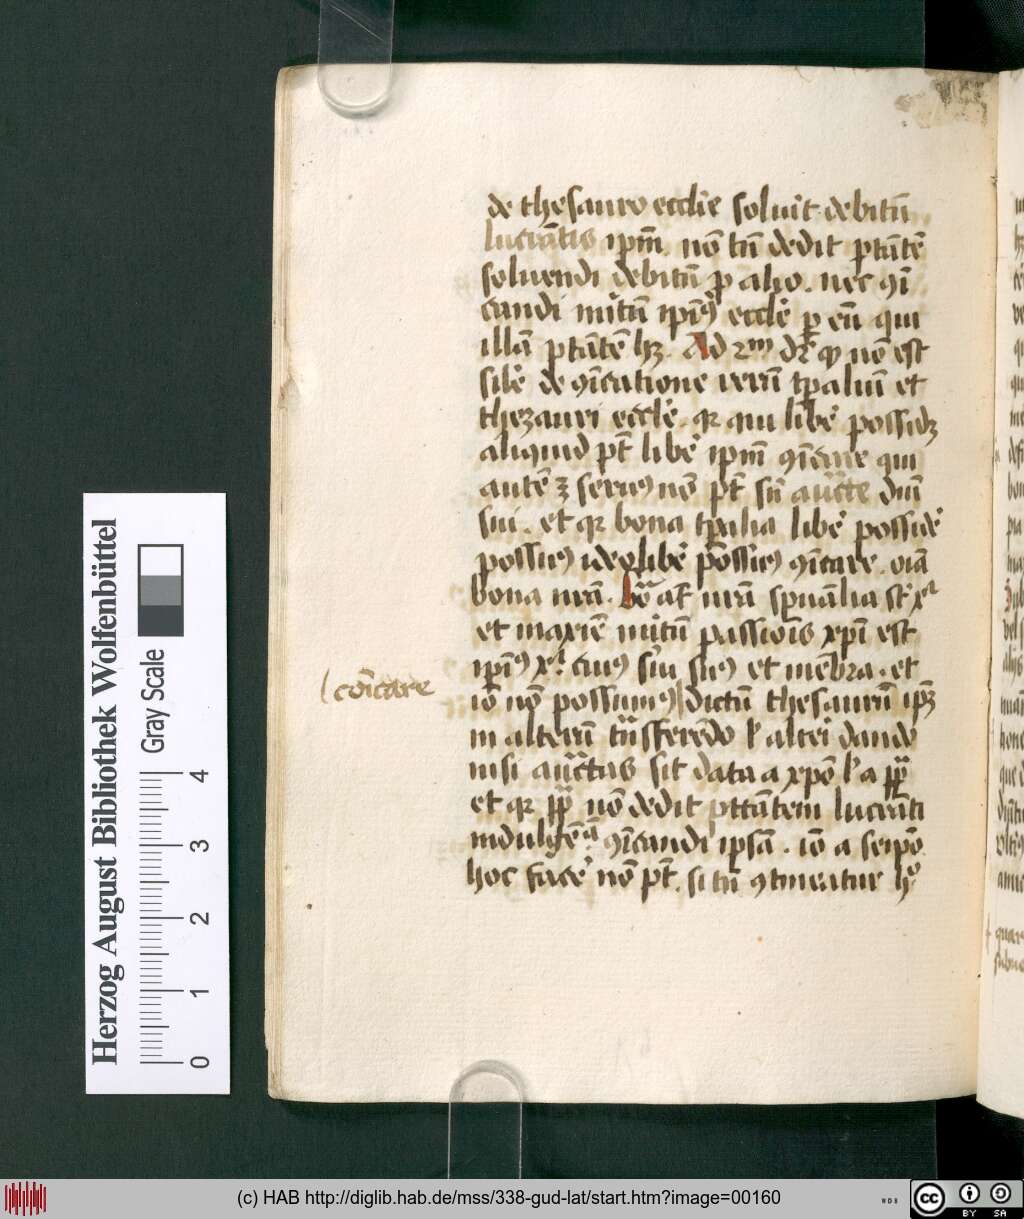 de thesauro ecclie soluit debitū
lucrātis ipm̄. nō tn̄ dedit ptātē
soluendi debitū p alio. nec ꝯī
candi mitū ipiꝰ eccle p eū qui
illā ptātē hꝫ. Ad 2m dr̄ qͥ nō est
sile de ꝯīcatione rerū tpaliū et
thezauri eccle. qr qui libe possidꝫ
aliquid pt̄ libe ipm̄ ꝯīcare qui
autē ꝫ seruꝰ nō pt̄ sn̄ aucte dn̄i
sui. et qr bona tpalia libe posside
possūꝰ ideo libe possūꝰ ꝯīcare oīa
bona nrā. bō at nrā spūalia st̄
et maxīe mitū passiōis xpī est
ipīꝰ xi cuiꝰ sūꝰ et mēbra. et
iō nō possumꝰ dictū thesaurū ipꝫ
in alterū trāsferēdo l alteri dando
nisi auctas sit data a xpō l a pp
et qr pp nō dedit pttātem lucrāti
indulgēā ꝯīcandi ipsā. iō a seipō
hoc face nō pt̄. si tn̄ ꝯtineatur
coīcare
Herzog August Bibliothek Wolfenbüttel
Gray Scale
0 1 2 3 4
(c) HAB http://diglib.hab.de/mss/338-gud-lat/start.htm?image=00160
WDB
cc BY SA